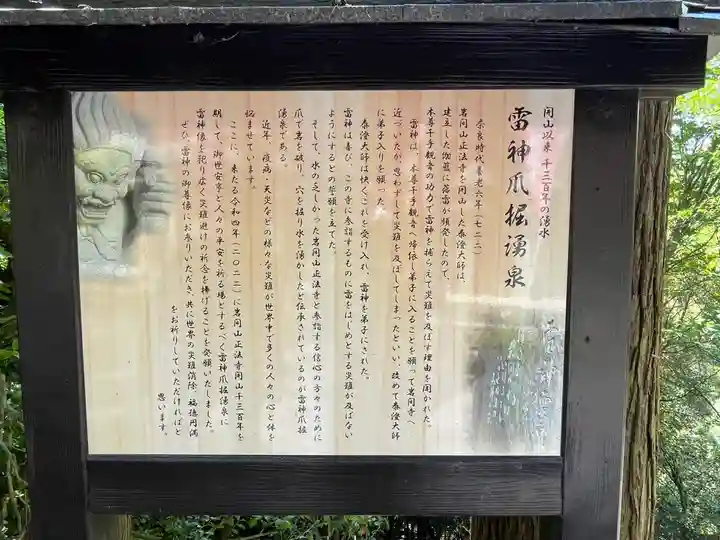 開山以来 千三百年の湧水
雷神爪掘湧泉
奈良時代養老六年（七二二）
岩間山正法寺を開山した泰澄大師は、
建立した伽藍に落雷が頻発したので、
本尊千手観音の功力で雷神を捕らえて災難を及ぼす理由を聞かれた。
雷神は、本尊千手観音へ帰依し弟子に入ることを願って岩間寺へ
近づいたが、思わずして災難を及ぼしてしまったといい、改めて泰澄大師
に弟子入りを願った。
泰澄大師は快くこれを受け入れ、雷神を弟子にされた。
雷神は喜び、この寺に参詣するものに雷をはじめとする災難が及ばない
ようにするとの誓願を立てた。
そして、水の乏しかった岩間山正法寺と参詣する信心の方々のために
爪で岩を破り、穴を掘り水を湧かしたと伝承されているのが雷神爪掘
湧泉である。
近年、疫病・天災などの様々な災難が世界中で多くの人々の心と体を
悩ませています。
ここに、来たる令和四年（二〇二二）に岩間山正法寺開山千三百年を
期して、御世安寧と人々の平安を祈る場とするべく雷神爪掘湧泉に
雷神像を祀り広く災難避けの祈念を捧げることを発願いたしました。
ぜひ、雷神の御尊像にお参りいただき、共に世界の災難消除 福徳円満
をお祈りしていただければと
思います。